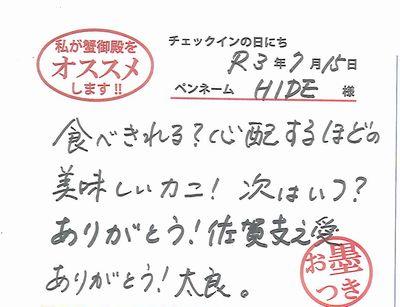 私が蟹御殿を
オススメ
します!!
チェックインの日にち
R3年7月15日
ペンネーム HIDE 様
食べきれる?心配するほどの
美味しいカニ! 次はいつ?
ありがとう!佐賀支え愛
ありがとう!太良。
お墨
つき